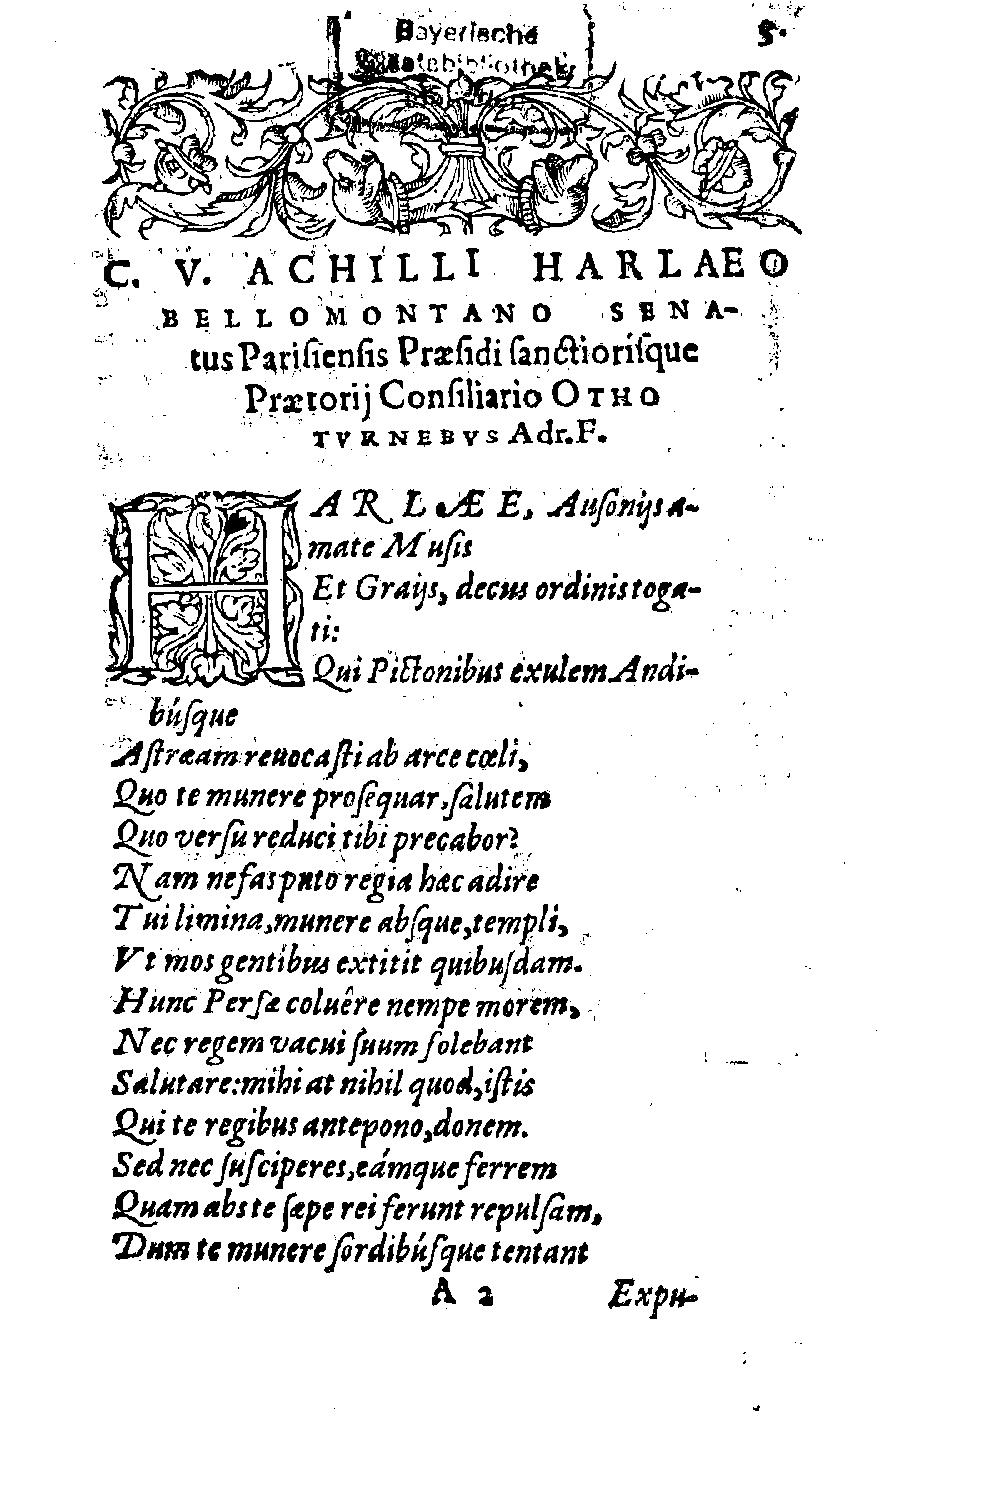 Bayerische
Staatsbibliothek
5.
C. V. ACHILLI HARLAEO
BELLOMONTANO SENA-
tus Pariſienſis Præſidi ſanctioríſque
Prætorij Conſiliario OTHO
TVRNEBVS Adr. F.
HARLÆE, Auſonijs a-
mate Muſis
Et Graijs, decus ordinis toga-
ti:
Qui Pictonibus exulem Andi-
búſque
Aſtræam reuocaſti ab arce cœli,
Quo te munere proſequar, ſalutem
Quo verſu reduci tibi precabor?
Nam nefas puto regia hæc adire
Tui limina, munere abſque, templi,
Vt mos gentibus extitit quibuſdam.
Hunc Perſæ coluêre nempe morem,
Nec regem vacui ſuum ſolebant
Salutare: mihi at nihil quod, iſtis
Qui te regibus antepono, donem.
Sed nec ſuſciperes, eámque ferrem
Quam abs te ſæpe rei ferunt repulſam,
Dum te munere ſordibúſque tentant
A 2
Expu-